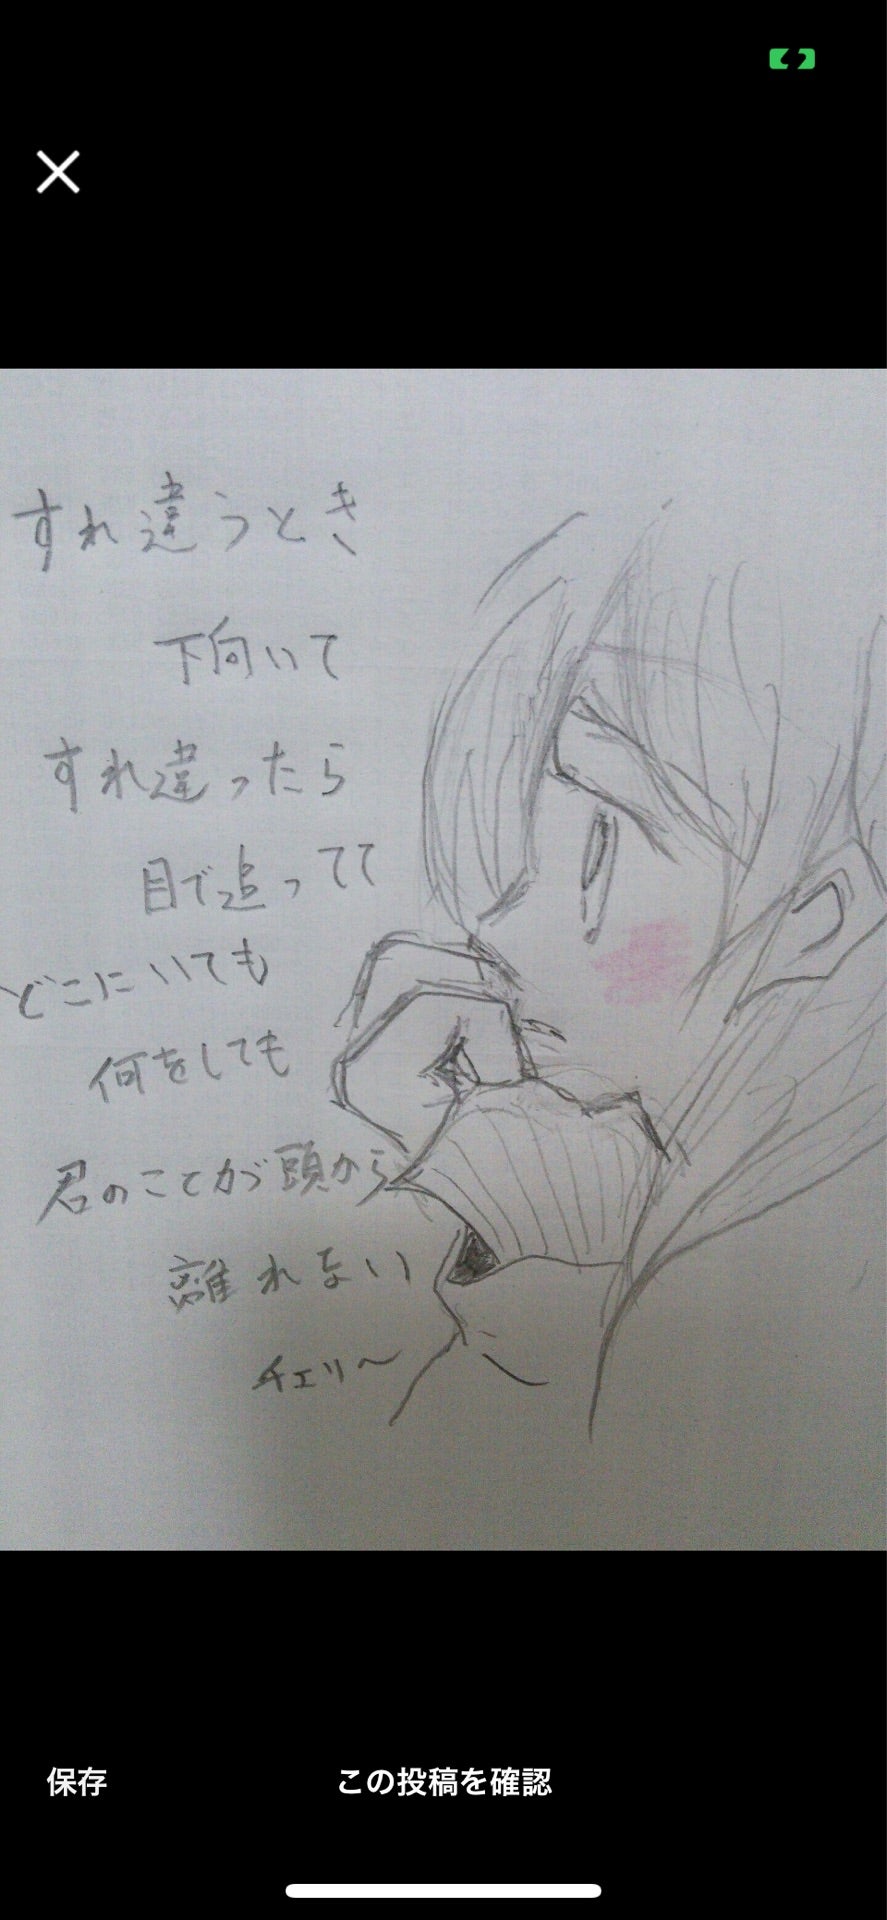 すれ違うとき
下向いて
すれ違ったら
目で追ってて
どこにいても
何をしても
君のことが頭から
離れない
チェリー
保存
この投稿を確認